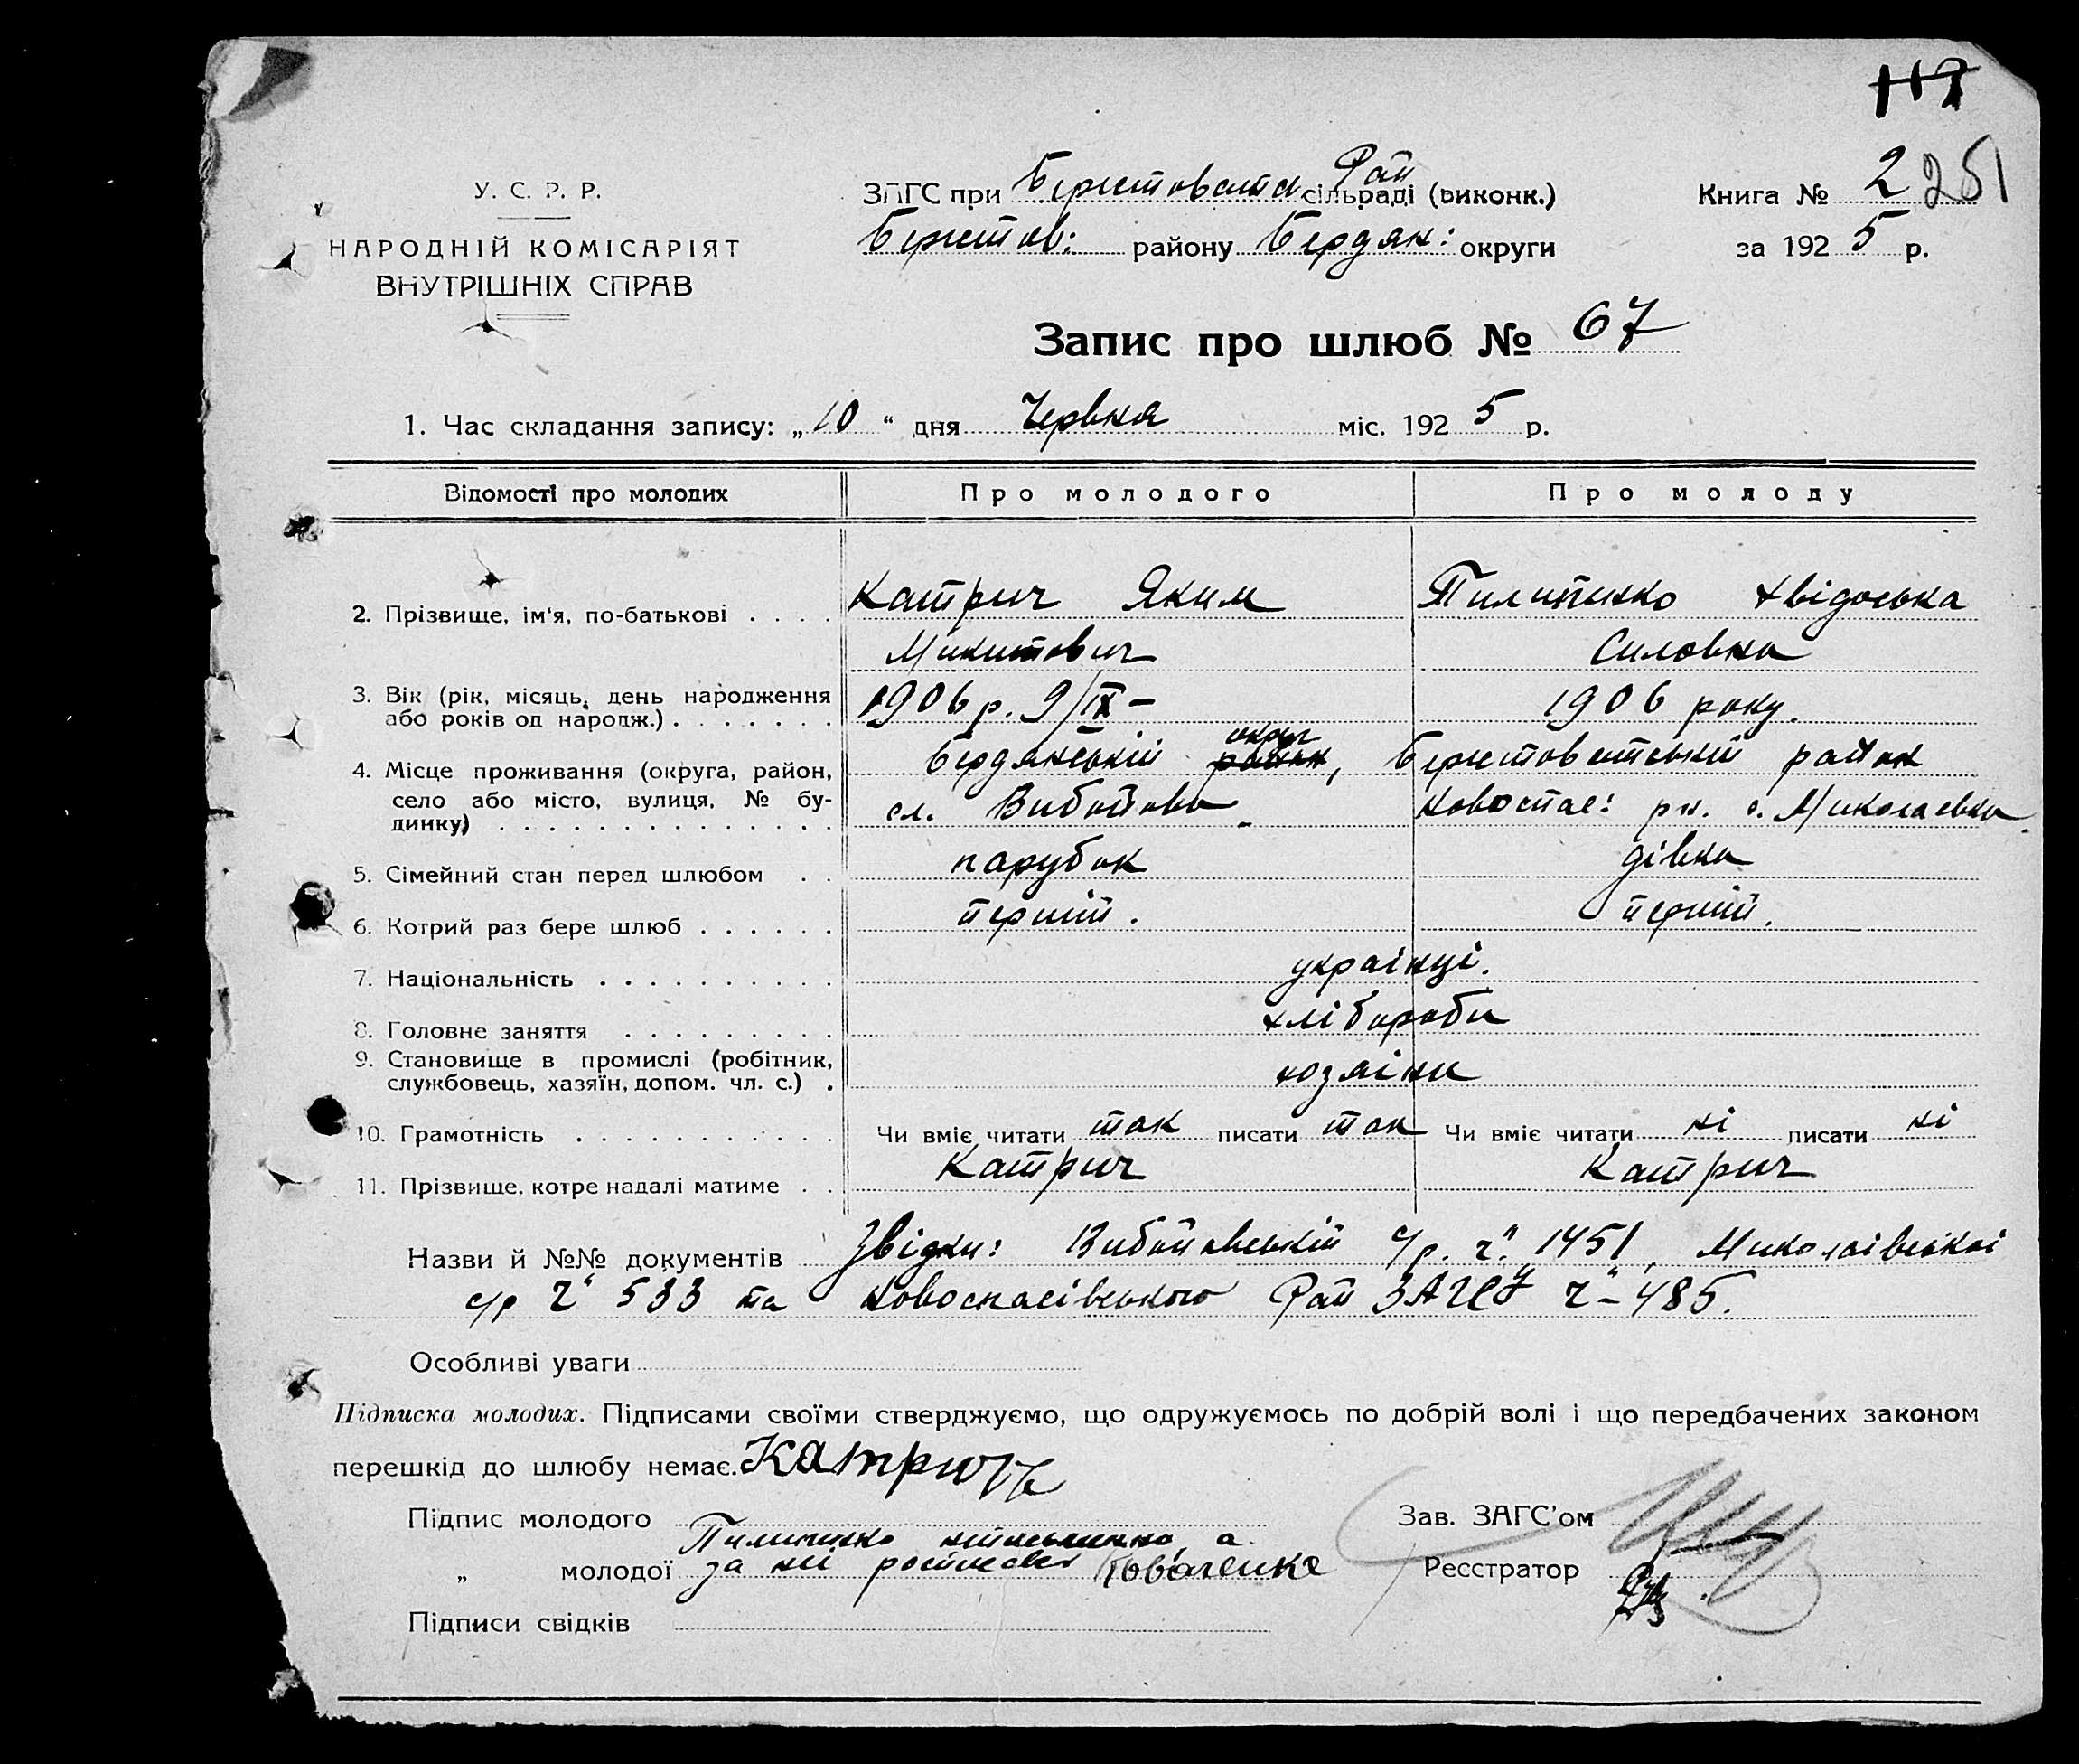 117
У. С. Р. Р.
НАРОДНІЙ КОМІСАРІЯТ
ВНУТРІШНІХ СПРАВ
ЗАГС при Берестоват Рай сільраді (виконк.)
Берестов: району Бердян: округи
Книга № 2 251
за 1925 р.
Запис про шлюб № 67
1. Час складання запису: „10“ дня Червня міс. 1925 р.
Відомості про молодих Про молодого Про молоду
2. Прізвище, ім'я, по-батькові Катрич Яким Пилипенко Хвідоська
Микитович Силовна
3. Вік (рік, місяць, день народження
або років од народж.) 1906 р. 9/IX – 1906 року.
4. Місце проживання (округа, район, Бердянський округ район, Берестоватський район
село або місто, вулиця, № бу-
динку) сл. Вибойово Новоспас: рн. с. Миколаевка
5. Сімейний стан перед шлюбом парубок дівка
6. Котрий раз бере шлюб перший. перший.
7. Національність украінці.
8. Головне заняття хлібороби
9. Становище в промислі (робітник,
службовець, хазяїн, допом. чл. с.) хозяіни
10. Грамотність Чи вміє читати так писати так Чи вміє читати ні писати ні
11. Прізвище, котре надалі матиме Катрич Катрич
Назви й №№ документів Звідки: Вибойовський с/р. ч. 1451, Миколаівськоі
с/р ч 533 та Новоспасівського Рай ЗАГСУ ч – 485.
Особливі уваги
Підписка молодих. Підписами своїми стверджуємо, що одружуємось по добрій волі і що передбачених законом
перешкід до шлюбу немає. Катричь
Підпис молодого
Пилипенко неписьменна, а
„ молодої за неі росписався
Підписи свідків
Зав. ЗАГС'ом
Реєстратор